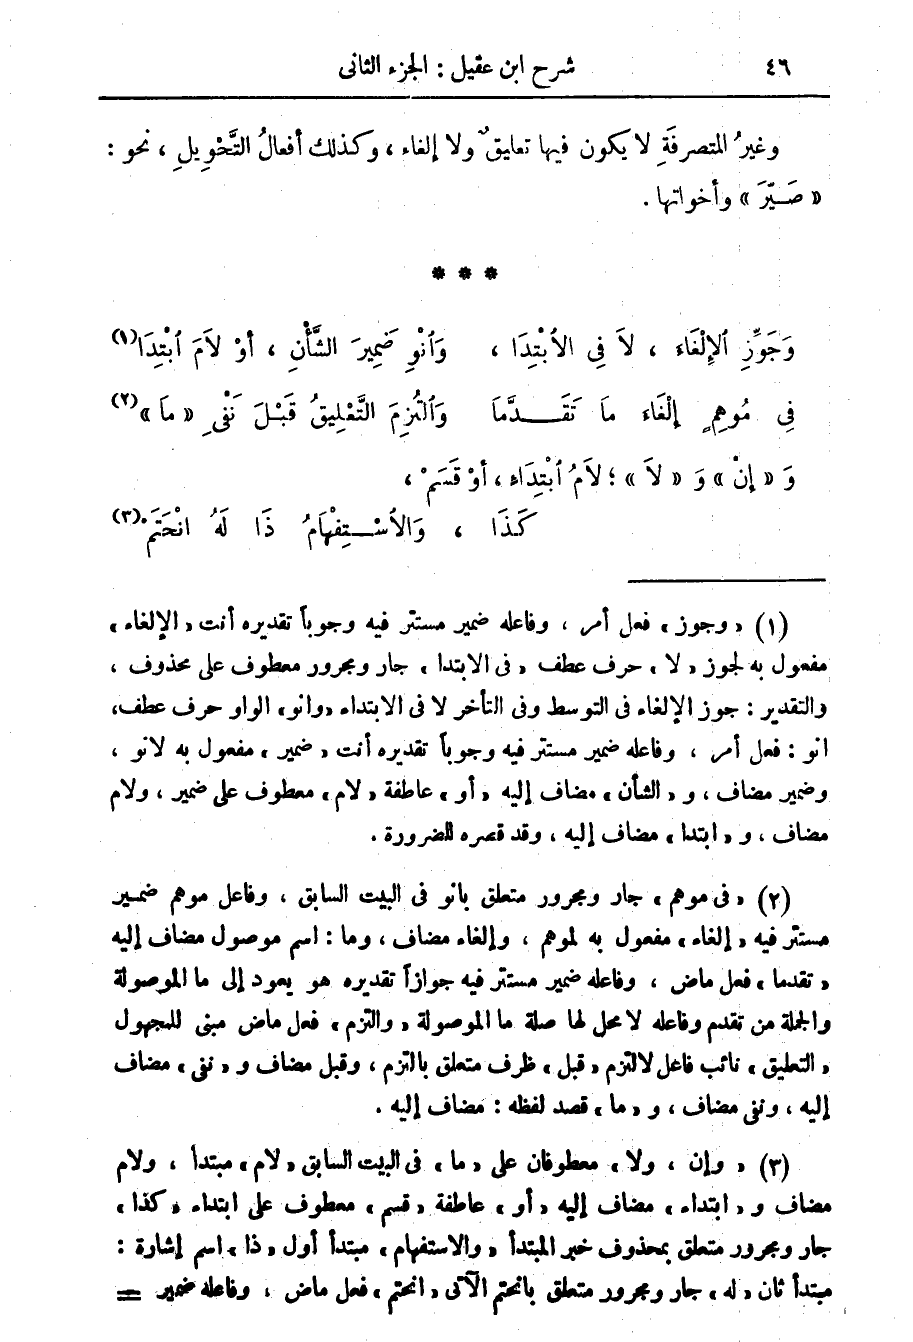 ٤٦ شرح ابن عقيل : الجزء الثانى
وغيرُ المتصرفَةِ لا يكون فيها تعليقٌ ولا إلغاء ، وكذلك أفعالُ التَّحْوِيلِ ، نحو :
« صَيَّرَ » وأخواتها .
* * *
وَجَوِّزِ ٱلإِلْغَاءَ ، لاَ فِى الاٌبْتِدَا ، وَٱنْوِ ضَمِيرَ الشَّأْنِ ، أَوْ لاَمَ ٱبْتِدَا(١)
فِى مُوهِمٍ إِلْغَاءَ مَا تَقَدَّمَا وَٱلْتُزِمَ التَّعْلِيقُ قَبْلَ نَفْىِ « مَا »(٢)
وَ « إِنْ » وَ « لاَ » ؛ لاَمُ ٱبْتِدَاءٍ ، أَوْ قَسَمْ ،
كَذَا ، وَالاٌسْتِفْهَامُ ذَا لَهُ انْحَتَمْ(٣)
(١) « وجوز » فعل أمر ، وفاعله ضمير مستتر فيه وجوباً تقديره أنت « الإلغاء »
مفعول به لجوز « لا » حرف عطف « فى الابتدا » جار ومجرور معطوف على محذوف ،
والتقدير : جوز الإلغاء فى التوسط وفى التأخر لا فى الابتداء « وانو » الواو حرف عطف ،
انو : فعل أمر ، وفاعله ضمير مستتر فيه وجوباً تقديره أنت « ضمير » مفعول به لانو ،
وضمير مضاف ، و « الشأن » مضاف إليه « أو » عاطفة « لام » معطوف على ضمير ، ولام
مضاف ، و « ابتدا » مضاف إليه ، وقد قصره للضرورة .
(٢) « فى موهم » جار ومجرور متعلق بانو فى البيت السابق ، وفاعل موهم ضمير
مستتر فيه « إلغاء » مفعول به لموهم ، وإلغاء مضاف ، وما : اسم موصول مضاف إليه
« تقدما » فعل ماض ، وفاعله ضمير مستتر فيه جوازاً تقديره هو يعود إلى ما الموصولة
والجملة من تقدم وفاعله لا محل لها صلة ما الموصولة « والتزم » فعل ماض مبنى للمجهول
« التعليق » نائب فاعل لالتزم « قبل » ظرف متعلق بالتزم ، وقبل مضاف و « نفى » مضاف
إليه ، ونفى مضاف ، و « ما » قصد لفظه : مضاف إليه .
(٣) « وإن ، ولا » معطوفان على « ما » فى البيت السابق « لام » مبتدأ ، ولام
مضاف و « ابتداء » مضاف إليه « أو » عاطفة « قسم » معطوف على ابتداء « كذا »
جار ومجرور متعلق بمحذوف خبر المبتدأ « والاستفهام » مبتدأ أول « ذا » اسم إشارة :
مبتدأ ثان « له » جار ومجرور متعلق بانحتم الآتى « انحتم » فعل ماض ، وفاعله ضمير =